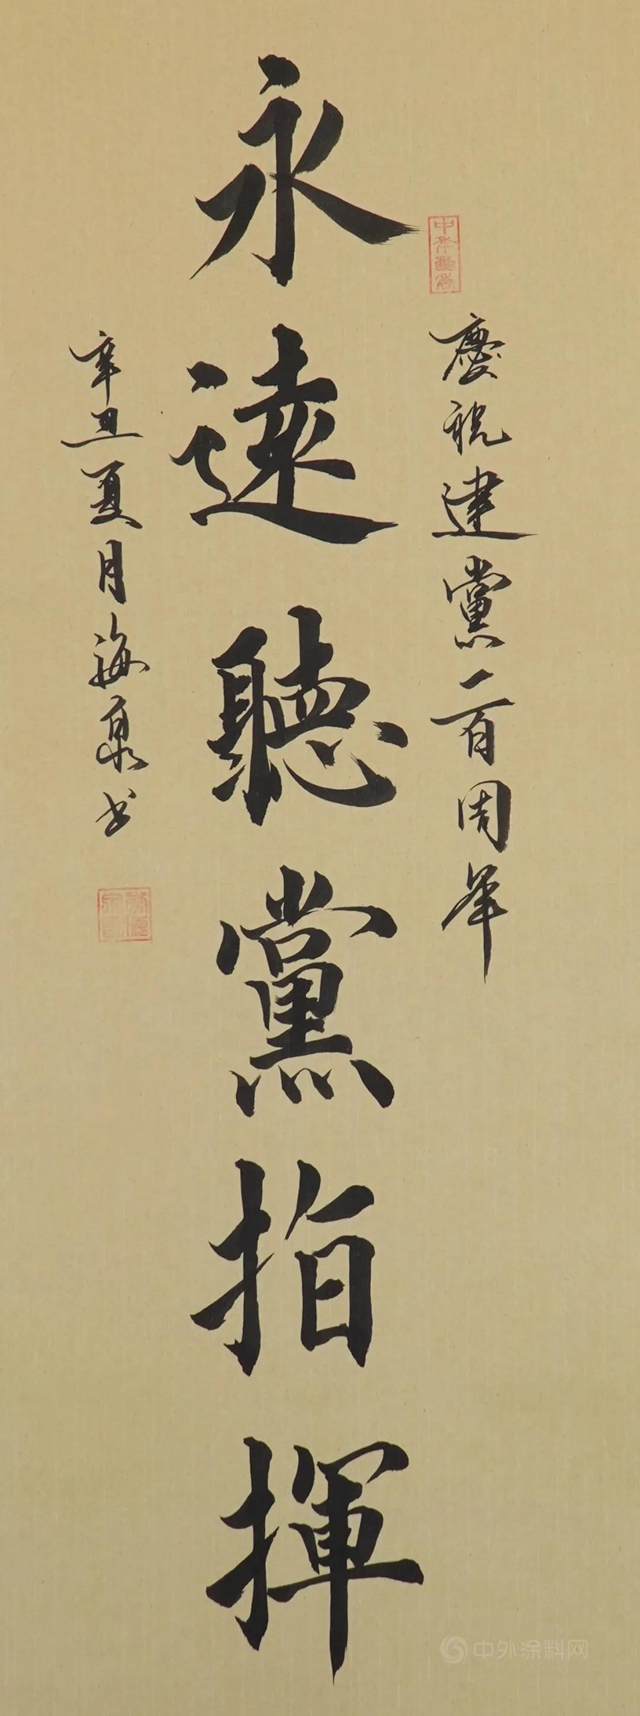 慶祝建黨一百周年
永遠聽黨指揮
辛丑夏月海泉书
中外涂料网